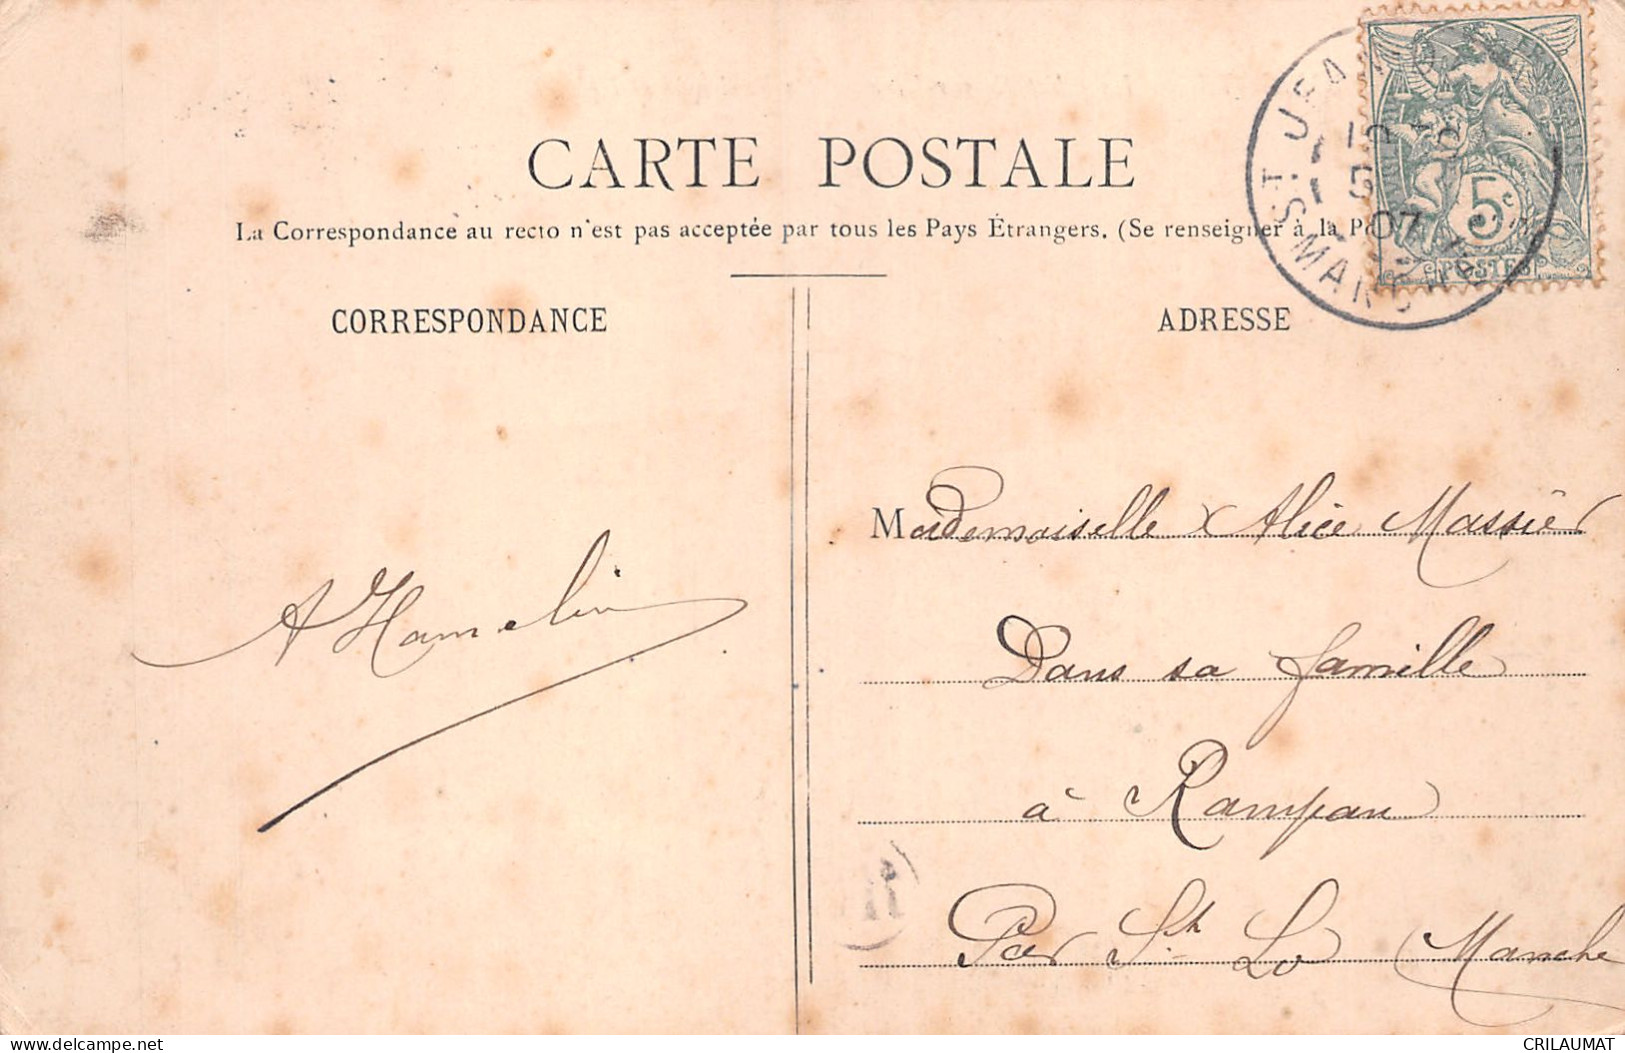 CARTE POSTALE
La Correspondance au recto n'est pas acceptée par tous les Pays Étrangers. (Se renseigner à la
CORRESPONDANCE
ADRESSE
07
5c
POSTES
MANCHE
A Hamelin
Mademoiselle Alice Massier
Dans sa famille
à Rampan
Par St. Lo Manche
www.delcampe.net
CRILAUMAT